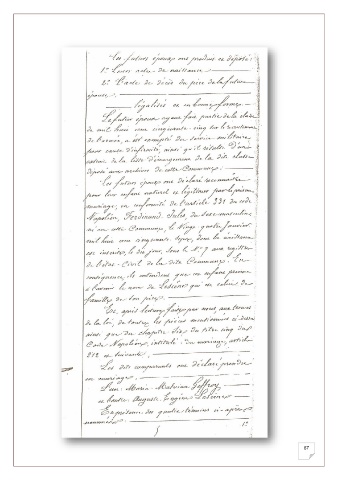 Les futurs époux ont produit et déposé:
1° Leurs actes de naissance
2° L'acte de décès du père de la future
épouse.
légalisés et en bonne forme
Le futur époux ayant fait partie de la classe
de mil huit cent cinquante cinq sur le
de est exempté du service militaire
pour cause d'infirmité, ainsi qu'il résulte d'un
extrait de la liste d'émargement de la dite classe
déposé aux archives de cette Commune.
Les futurs époux ont déclaré reconnaître
pour leur enfant naturel et légitimer par le présent
mariage, en conformité de l'article 331 du code
Napoléon, Ferdinand Jules, du sexe masculin
né en cette Commune, le Vingt quatre Janvier
mil huit cent cinquante dont la naissance
est inscrite, le dit jour, sous le N° 7 aux registres
de l'état-Civil de la dite Commune. En
conséquence, ils entendent que cet enfant prenne
à l'avenir le nom de qui est celui de
famille de son père.
Et, après lecture faite par nous aux termes
de la loi, de toutes les pièces mentionnées ci dessus
ainsi que du chapitre Six du titre cinq du
Code Napoléon, intitulé: du mariage, articles
212 et suivants.
Les dits comparants ont déclaré prendre
en mariage,
L'un: Marie Malvina Joffroy
et l'autre: Auguste Eugène
En présence des quatre témoins ci-après
nommés
1°
87